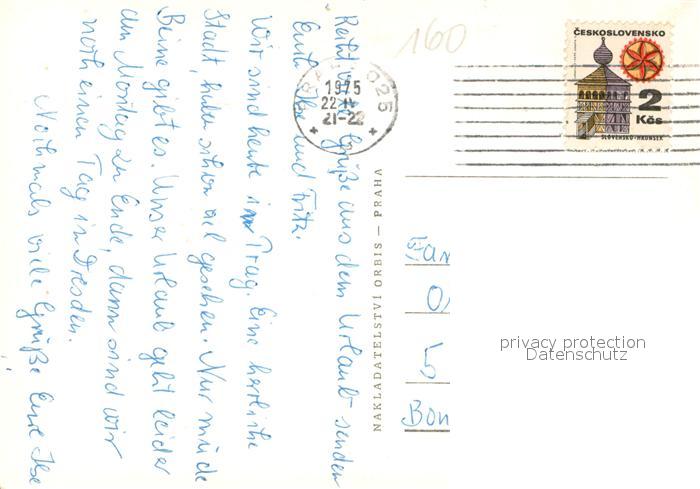 Recht viele Grüße aus dem Urlaub senden
Euch Ilse und Fritz.
Wir sind heute in Prag. Eine herrliche
Stadt, haben schon viel gesehen. Nur müde
Beine gibt es. Unser Urlaub geht leider
am Montag zu Ende, dann sind wir
noch einen Tag in Dresden.
Nochmals viele Grüße Eure Ilse
160
PRAHA 025
1975
22.IV.
21-22
ČESKOSLOVENSKO
2
Kčs
SLOVENSKO-HRONSEK
NAKLADATELSTVÍ ORBIS — PRAHA
Fam
5
Bon
privacy protection
Datenschutz